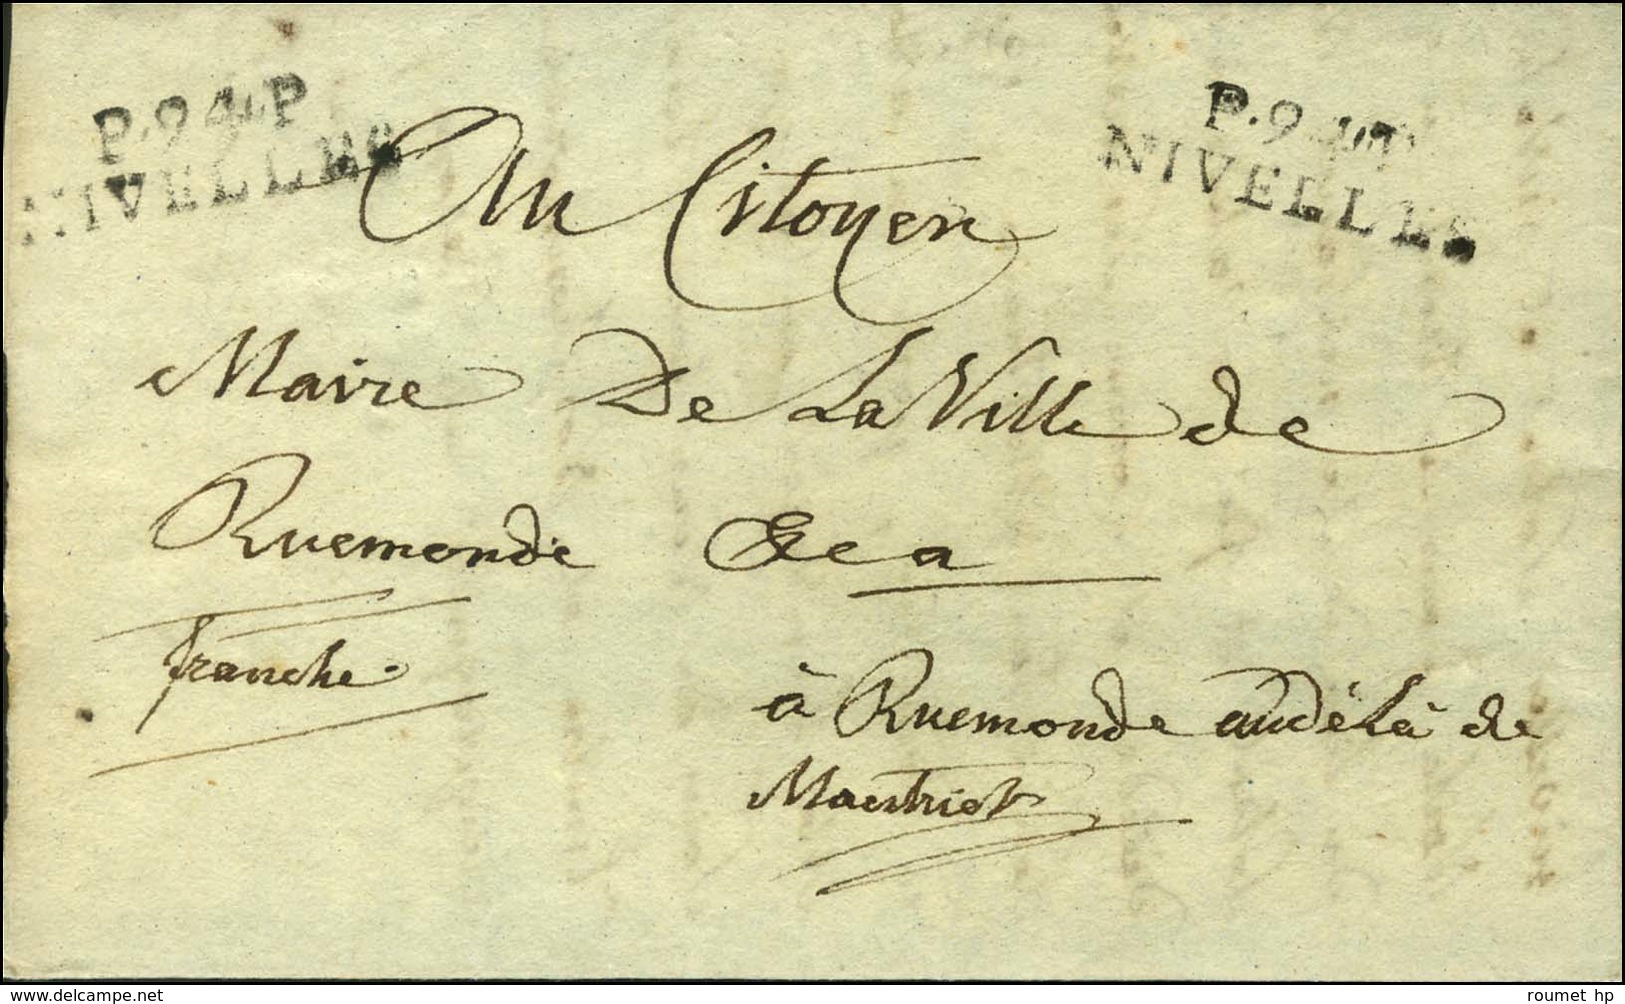 P.94.P
NIVELLES
P.94.P
NIVELLES
Au Citoyen
Maire De La Ville de
Ruremonde &c a
franche.
à Ruremonde audélà de
Maestricht
delcampe.net
roumet hp